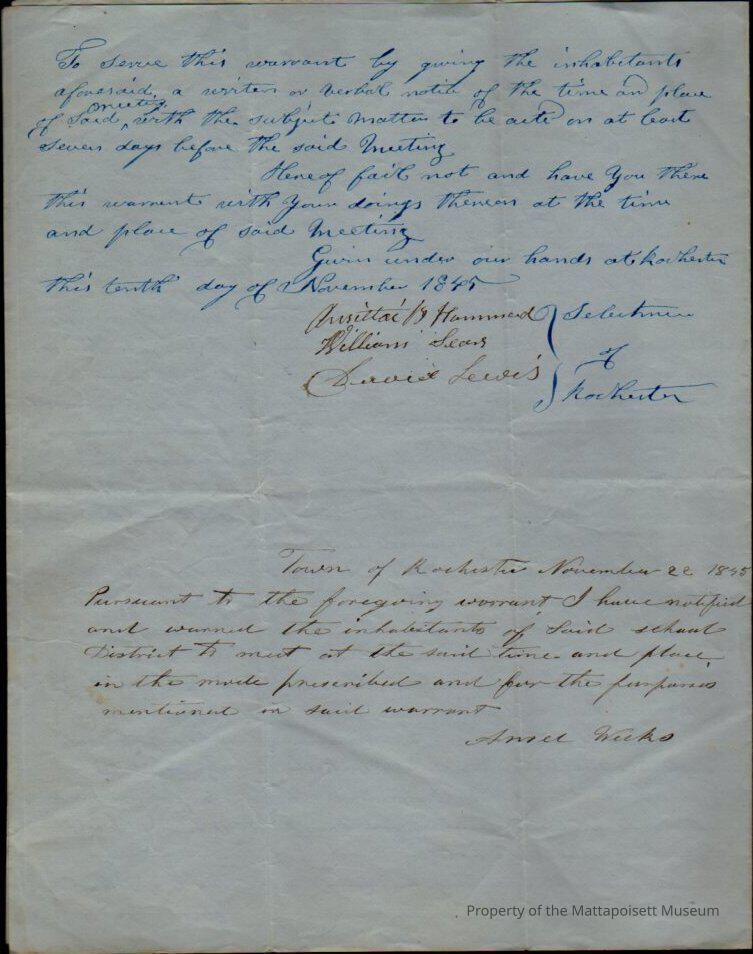 To serve this warrant by giving the inhabitants
aforesaid a written or verbal notice of the time and place
meeting
of said with the subject matter to be acted on at least
seven days before the said Meeting
Hereof fail not and have You there
this warrant with Your doings thereon at the time
and place of said Meeting
Given under our hands at Rochester
this tenth day of November 1845
Hammond Selectmen
William Sears
of
David Lewis
Rochester
Town of Rochester November 22 1845
Pursuant to the foregoing warrant I have notified
and warned the inhabitants of said school
District to meet at the said time and place
in the mode prescribed and for the purposes
mentioned in said warrant
Ansel Weeks
Property of the Mattapoisett Museum